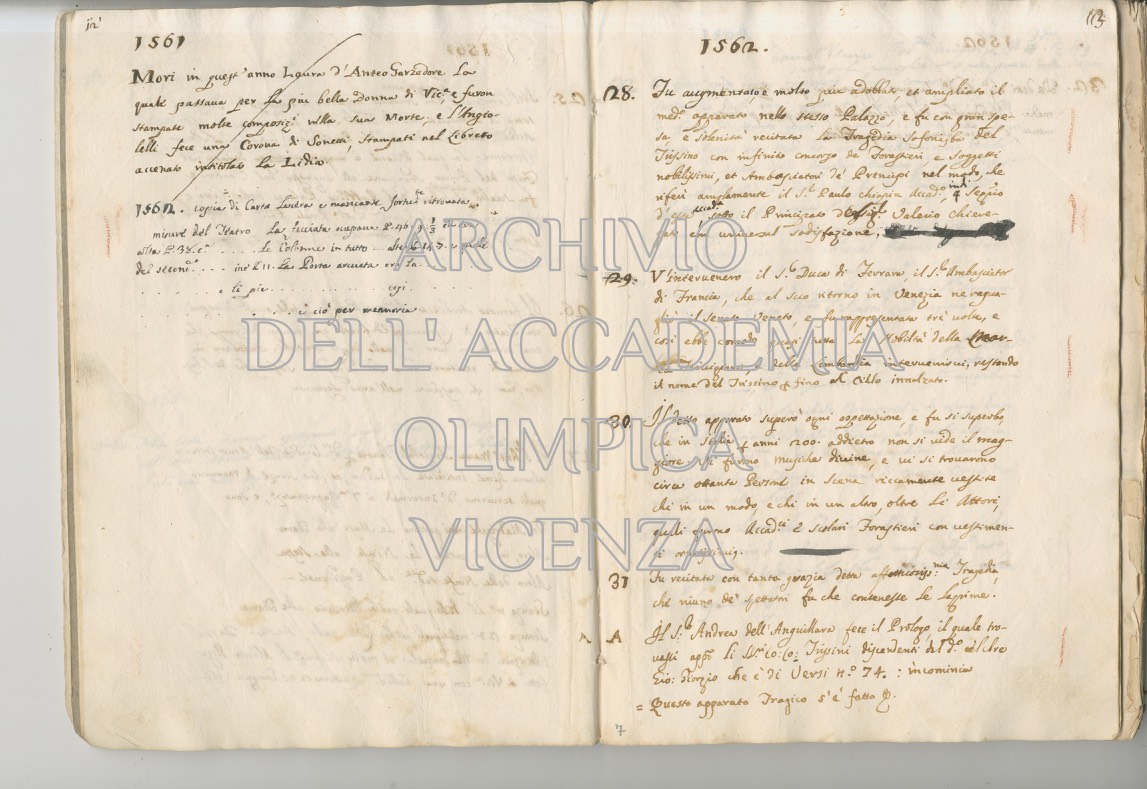 12
1561
Mori in quest' anno Laura d'Anteo Garzadore la
quale passava per la piu bella Donna di Vic.ª, e furon
stampate molte composiz.i nella sua Morte, e l'Angio-
lelli fece una Corona di Sonetti, Stampati nel Libretto
accenato intitolato La Lidia.
1562. copia di Carta lacera e mancante, ritrovata
misure del Teatro. La facciata occupava P. 40
alta P. 38. le Colonne in tutto alte P. 14
de semi . . . . La Porta arcuata
. . . . . e li pie . . . . . . . . cosi . . . . .
. . . . . . . e ciò per memoria
113
1562.
128. Fu augmentato, e molto piu adobbato, et ampliato il
med.º apparato nello stesso Palazzo, e fu con gran spe-
sa, e solenità recitata la Tragedia Sofonisba del
Trissino con infinito concorso de' Forastieri, e Soggetti
nobilissimi, et Ambasciatori de' Prencipi nel modo, che
riferì amplamente il S.r Paulo Chiapin Accad.º
sotto il Principato Valerio Chiere-
gato con universal Sodisfazione,
129. V'intervenero il S.r Duca di Ferrara il S.r Ambasciator
di Francia, che al suo ritorno in Venezia ne raqua-
gliò il Senato Veneto, e fu rappresentata trè volte, e
così ebbe comodo quasi tutta la Nobiltà della Mar-
ca Trivigiana, e della Lombardia intervenirvi, restando
il noma del Trissino fino al Cielo innalzato.
30. Il detto apparato superò ogni aspettazione, e fu si superbo,
che in Italia p anni 200. addietro non si vide il mag-
giore. Vi furono Musiche divine, e vi si trovarono
circa ottanta Persone in Scena riccamente vestite
chi in un modo, e chi in un altro, oltre li Attori,
quali furono Accad.ci e Scolari Forastieri con vestimen-
ti
31 Fu recitata con tanta grazia detta Tragedia,
che niuno de' spettatori fu che contenesse le lagrime.
A Il S.r Andrea dell'Anguillara fece il Prologo il quale tro-
vasi app.º li Sig.ri Co: Co: Trissini discendenti del d.º celebre
Gio: Giorgio che è di Versi n.º 74. : incomincia
= Questo apparato Tragico s'è fatto &.
7
ARCHIVIO
DELL'ACCADEMIA
OLIMPICA
VICENZA